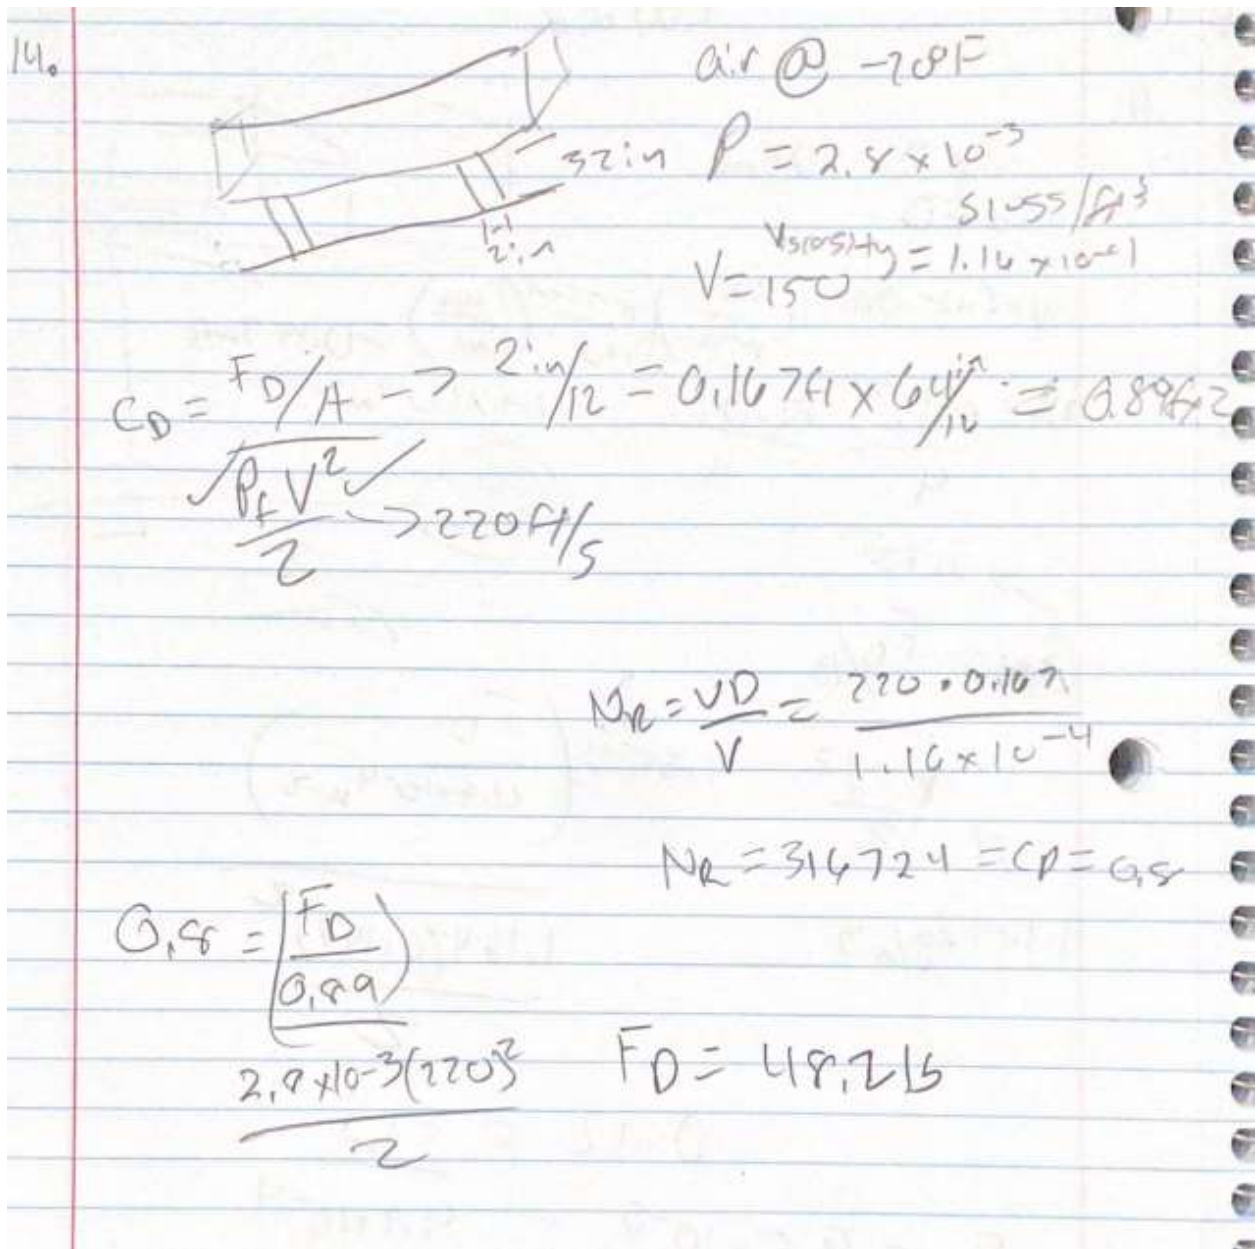 14.
air @ -20°F
32in
ρ = 2.8 × 10⁻³
slugs/ft³
2in
viscosity = 1.16 × 10⁻⁴
V = 150
C_D = (F_D/A) / (ρ_f V² / 2) → 2in/12 = 0.167ft × 64in/12 = 0.89ft2
→ 220 ft/s
N_R = VD/V = 220 • 0.167 / 1.16 × 10⁻⁴
N_R = 316724 = CD = 0.8
0.8 = (F_D / 0.89) / (2.8 × 10⁻³ (220)² / 2)
F_D = 48.2 lb